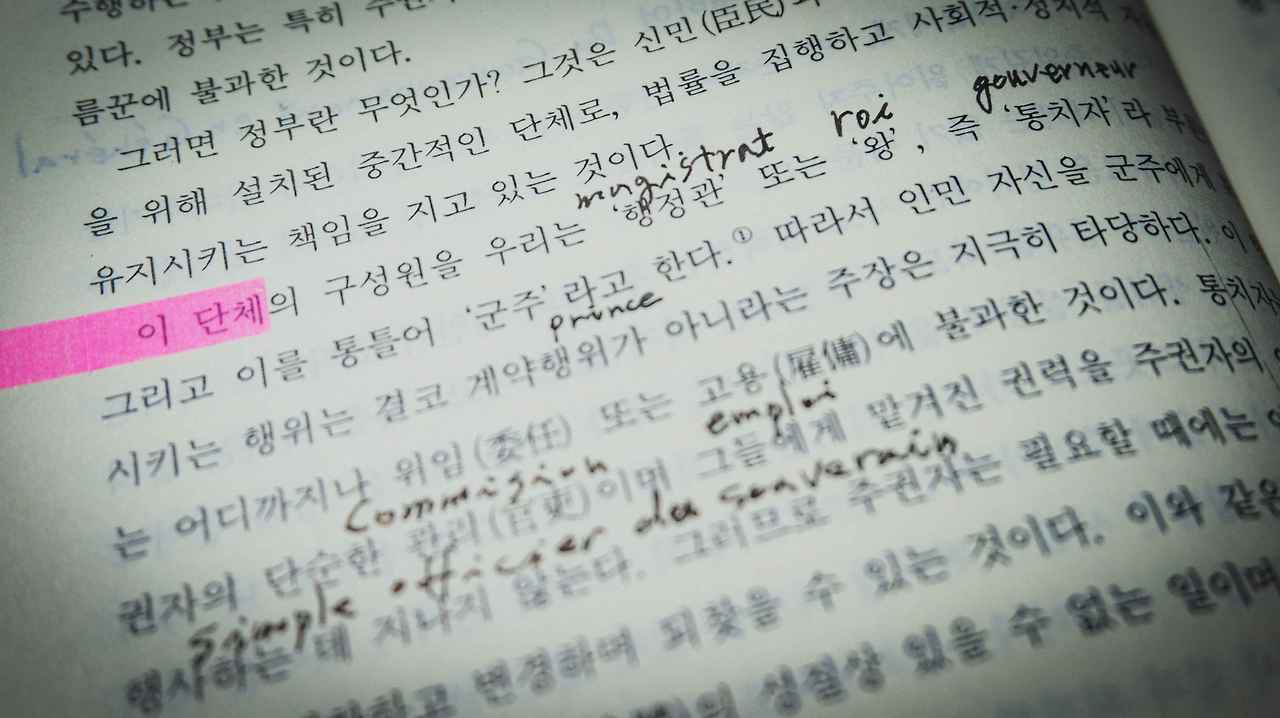 있다. 정부는 특히
름꾼에 불과한 것이다.
그러면 정부란 무엇인가? 그것은 신민(臣民)과
을 위해 설치된 중간적인 단체로, 법률을 집행하고 사회적·정치적
gouverneur
유지시키는 책임을 지고 있는 것이다.
magistrat roi
이 단체의 구성원을 우리는 '행정관' 또는 '왕', 즉 '통치자'라
그리고 이를 통틀어 '군주'라고 한다.① 따라서 인민 자신을 군주에게
prince
시키는 행위는 결코 계약행위가 아니라는 주장은 지극히 타당하다. 이
는 어디까지나 위임(委任) 또는 고용(雇傭)에 불과한 것이다. 통치자
commision emploi
권자의 단순한 관리(官吏)이며 그들에게 맡겨진 권력을 주권자의
simple officier du souverain
행사하는 데 지나지 않는다. 그러므로 주권자는 필요할 때에는
하고 변경하며 되찾을 수 있는 것이다. 이와 같은
의 성질상 있을 수 없는 일이며